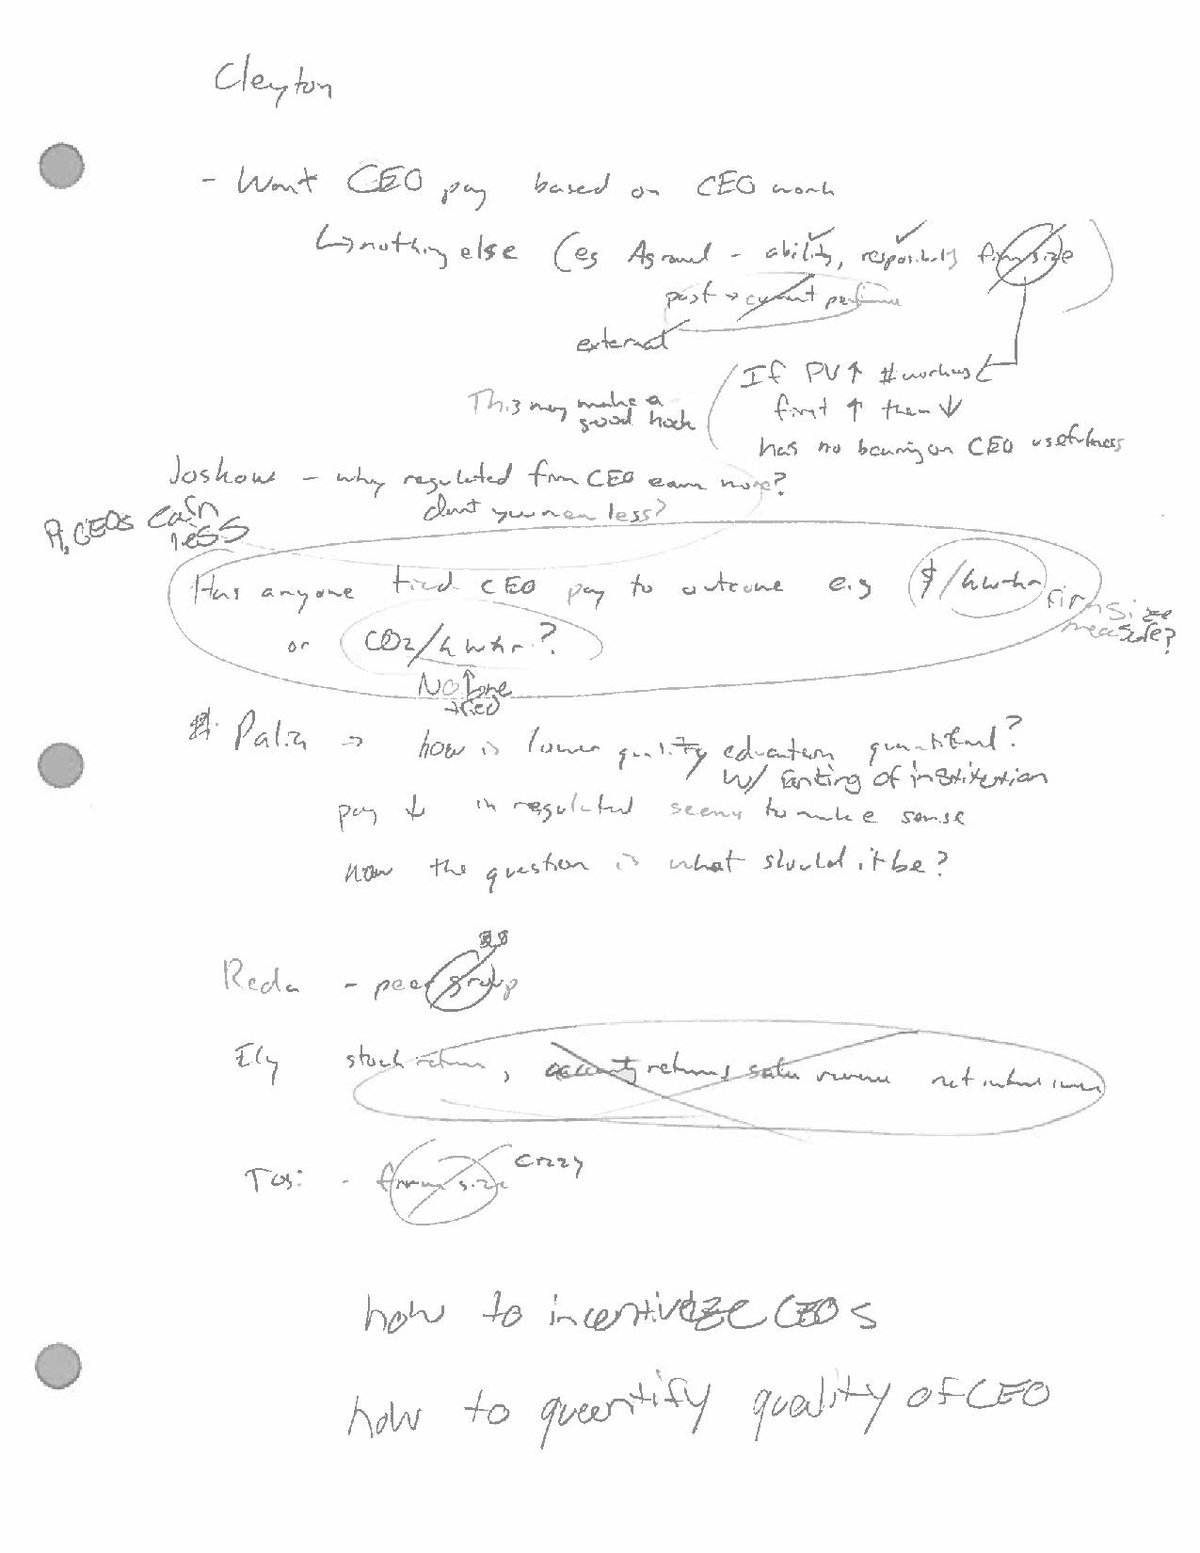 Cleyton
- Want CEO pay based on CEO work
↳ nothing else (eg Agrawal - ability, responsibility firm size)
past → current performance
external
If PV↑ # workers
This may make a good hook
first ↑ then ↓
has no bearing on CEO usefulness
Joskow - why regulated firm CEO earn more?
dont you mean less?
R, CEOs earn less
Has anyone tied CEO pay to outcome e.g $/kw-hr firm size measure?
or CO2/kwhr?
No one tried
Palia → how is lower quality education quantified?
w/ ranking of institution
pay ↓ in regulated seems to make sense
now the question is what should it be?
Reda - peer group
Ely stock return, accounting returns, sales revenue net
Tosi - firm size crazy
how to incentivize CEOs
how to quantify quality of CEO